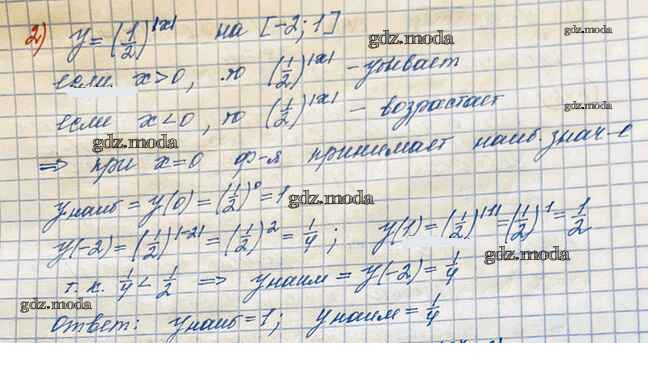 2) y = (1/2)^|x| на [-2; 1]
gdz.moda
gdz.moda
если x > 0, то (1/2)^|x| - убывает
если x < 0, то (1/2)^|x| - возрастает
gdz.moda
gdz.moda
⇒ при x = 0 ф-я принимает наиб. знач-е
y наиб = y(0) = (1/2)^0 = 1
gdz.moda
y(-2) = (1/2)^|-2| = (1/2)^2 = 1/4; y(1) = (1/2)^|1| = (1/2)^1 = 1/2
gdz.moda
т. к. 1/4 < 1/2 ⇒ y наим = y(-2) = 1/4
gdz.moda
gdz.moda
Ответ: y наиб = 1; y наим = 1/4